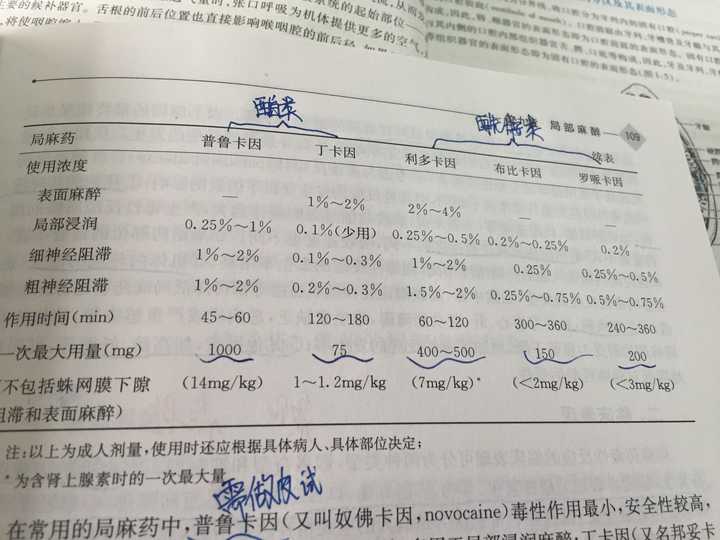 酯类
酰胺类
局部麻醉 109
续表
局麻药 普鲁卡因 丁卡因 利多卡因 布比卡因 罗哌卡因
使用浓度
表面麻醉 — 1%~2% 2%~4% — —
局部浸润 0.25%~1% 0.1%(少用) 0.25%~0.5% 0.2%~0.25% 0.2%
细神经阻滞 1%~2% 0.1%~0.3% 1%~2% 0.25% 0.25%~0.5%
粗神经阻滞 1%~2% 0.2%~0.3% 1.5%~2% 0.25%~0.75% 0.5%~0.75%
作用时间(min) 45~60 120~180 60~120 300~360 240~360
一次最大用量(mg) 1000 75 400~500 150 200
不包括蛛网膜下隙 (14mg/kg) 1~1.2mg/kg (7mg/kg)* (<2mg/kg) (<3mg/kg)
阻滞和表面麻醉)
注:以上为成人剂量,使用时还应根据具体病人、具体部位决定;
*为含肾上腺素时的一次最大量
需做皮试
在常用的局麻药中,普鲁卡因(又叫奴佛卡因,novocaine)毒性作用最小,安全性较高,